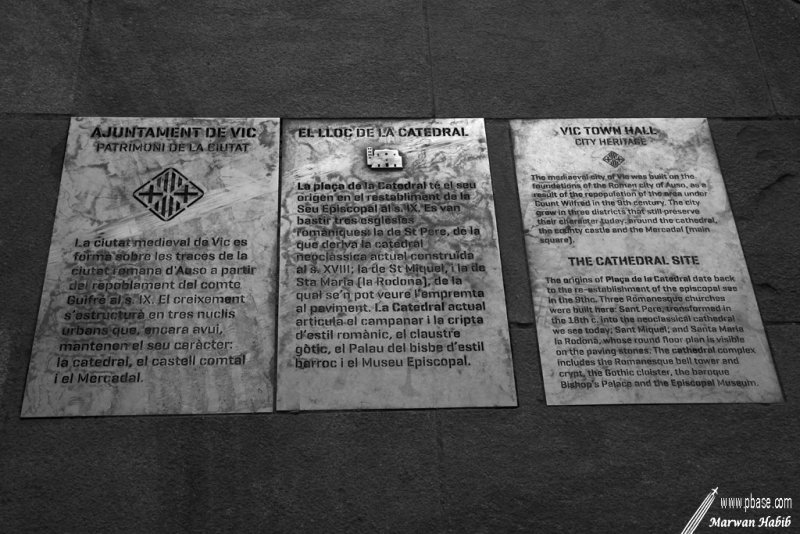 AJUNTAMENT DE VIC
PATRIMONI DE LA CIUTAT
La ciutat medieval de Vic es
forma sobre les traces de la
ciutat romana d'Auso a partir
del repoblament del comte
Guifré al s. IX. El creixement
s'estructurà en tres nuclis
urbans que, encara avui,
mantenen el seu caràcter:
la catedral, el castell comtal
i el Mercadal.
EL LLOC DE LA CATEDRAL
La plaça de la Catedral té el seu
origen en el restabliment de la
Seu Episcopal al s. IX. Es van
bastir tres esglésies
romàniques: la de St Pere, de la
que deriva la catedral
neoclàssica actual construïda
al s. XVIII; la de St Miquel, i la de
Sta Maria (la Rodona), de la
qual se'n pot veure l'empremta
al paviment. La Catedral actual
articula el campanar i la cripta
d'estil romànic, el claustre
gòtic, el Palau del bisbe d'estil
barroc i el Museu Episcopal.
VIC TOWN HALL
CITY HERITAGE
The medieval city of Vic was built on the
foundations of the Roman city of Auso, as a
result of the repopulation of the area under
Count Wilfred in the 9th century. The city
grew in three districts that still preserve
their character today: around the cathedral,
the county castle and the Mercadal (main
square).
THE CATHEDRAL SITE
The origins of Plaça de la Catedral date back
to the re-establishment of the episcopal see
in the 9thc. Three Romanesque churches
were built here: Sant Pere, transformed in
the 18th c. into the neoclassical cathedral
we see today; Sant Miquel; and Santa Maria
la Rodona, whose round floor plan is visible
on the paving stones. The cathedral complex
includes the Romanesque bell tower and
crypt, the Gothic cloister, the baroque
Bishop's Palace and the Episcopal Museum.
www.pbase.com
Marwan Habib